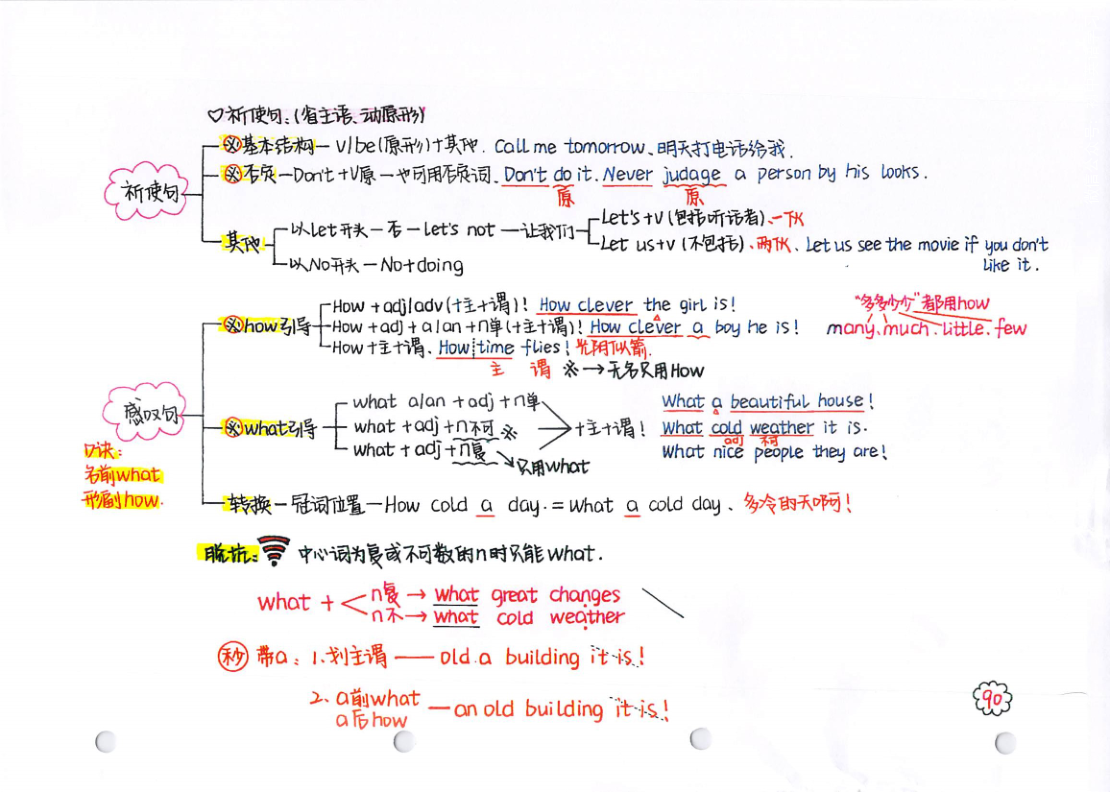 ♡祈使句:(省主语、动原形)
祈使句
※基本结构—v/be(原形)+其他. Call me tomorrow、明天打电话给我.
※否定—Don't+V原—也可用否定词、Don't do it. Never judage a person by his looks.
原 原
其他
以Let开头—否—Let's not—让我们
Let's+v(包括听话者)、一伙
Let us+v(不包括)、两伙、Let us see the movie if you don't
like it.
以No开头—No+doing
感叹句
口诀:
名前what
形副how.
※how引导
How+adj/adv(+主+谓)! How clever the girl is!
How+adj+a/an+n单(+主+谓)! How clever a boy he is!
How+主+谓、How time flies! 光阴似箭.
主 谓 ※→无名只用How
"多多少少"都用how
many.much.little.few
※what引导
what a/an+adj+n单
what+adj+n不可※
what+adj+n复
只用what
+主+谓!
What a beautiful house!
What cold weather it is.
adj 不可
What nice people they are!
转换—冠词位置—How cold a day.=What a cold day、多冷的天啊!
脱坑: 中心词为复或不可数的n时只能what.
what+
n复→what great changes
n不→what cold weather
秒 带a: 1.划主谓——old a building it is!
2、a前what
a后how
—an old building it is!
90